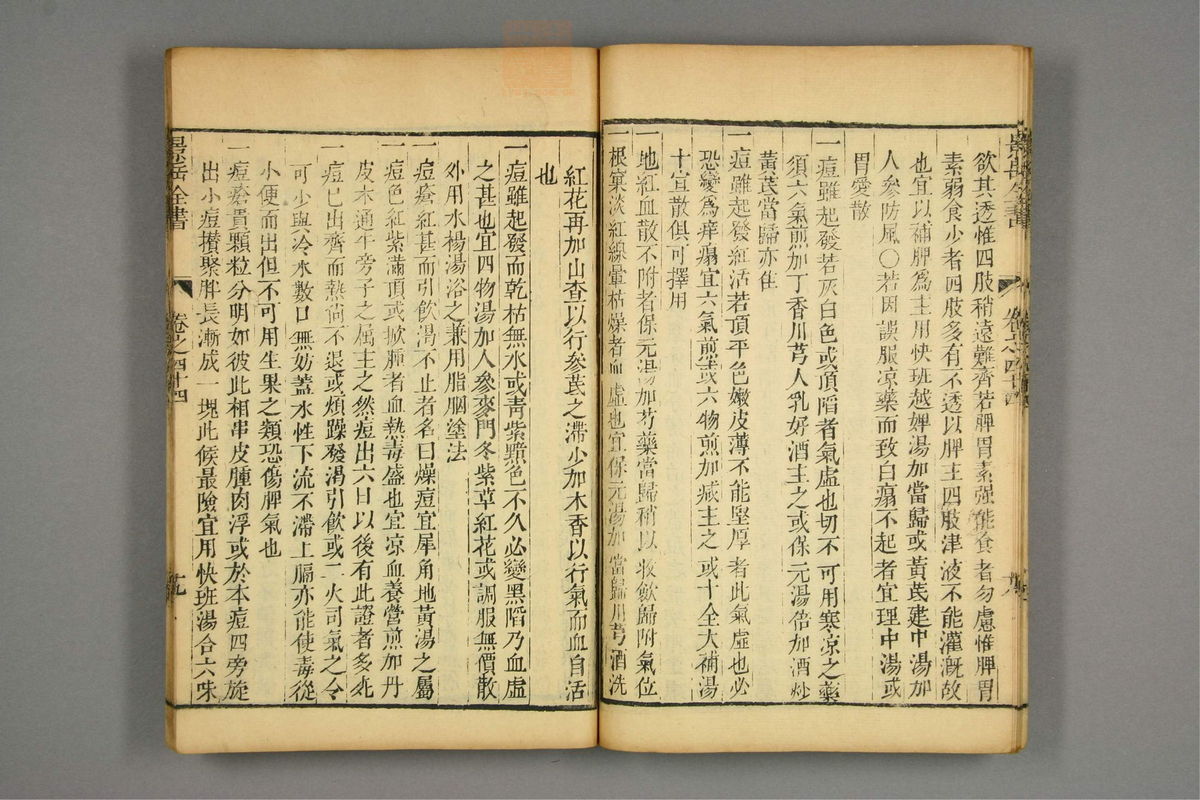 欲其透惟四肢稍遠難齊若脾胃素强能食者勿慮惟脾胃
素弱食少者四肢多有不透以脾主四肢津液不能灌溉故
也宜以補脾爲主用快班越婢湯加當歸或黃芪建中湯加
人參防風〇若因誤服凉藥而致白癟不起者宜理中湯或
胃愛散
一痘雖起發若灰白色或頂陷者氣虛也切不可用寒凉之藥
須六氣煎加丁香川芎人乳好酒主之或保元湯倍加酒炒
黃芪當歸亦佳
一痘雖起發紅活若頂平色嫩皮薄不能堅厚者此氣虛也必
恐變爲痒癟宜六氣煎或六物煎加減主之或十全大補湯
十宣散俱可擇用
一地紅血散不附者保元湯加芍藥當歸稍以收飲歸附氣位
一根窠淡紅線暈枯燥者血虛也宜保元湯加當歸川芎酒洗
紅花再加山查以行參芪之滯少加木香以行氣而血自活
也
一痘雖起發而乾枯無水或靑紫黯色不久必變黑陷乃血虛
之甚也宜四物湯加人參麥門冬紫草紅花或調服無價散
外用水楊湯浴之兼用脂胭塗法
一痘瘡紅甚而引飲渴不止者名曰燥痘宜犀角地黃湯之屬
一痘色紅紫滿頂或掀腫者血熱毒盛也宜凉血養營煎加丹
皮木通牛旁子之屬主之然痘出六日以後有此證者多死
一痘已出齊而熱尙不退或煩躁發渴引飲或二火司氣之令
可少與冷水數口無妨蓋水性下流不滯上膈亦能使毒從
小便而出但不可用生果之類恐傷脾氣也
一痘瘡貴顆粒分明如彼此相串皮腫肉浮或於本痘四旁旋
出小痘攢聚胖長漸成一塊此候最險宜用快班湯合六味
景岳全書
卷之四十四
九